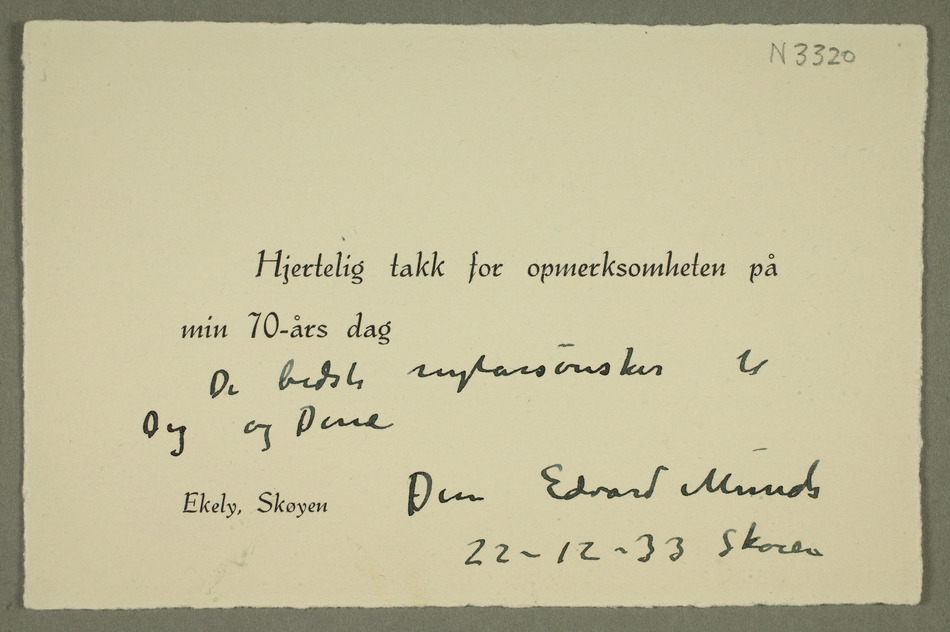 N 3320
Hjertelig takk for opmerksomheten på
min 70-års dag
De bedste nytårsönsker til
Dig og Dine
Ekely, Skøyen Din Edvard Munch
22-12-33 Skøien